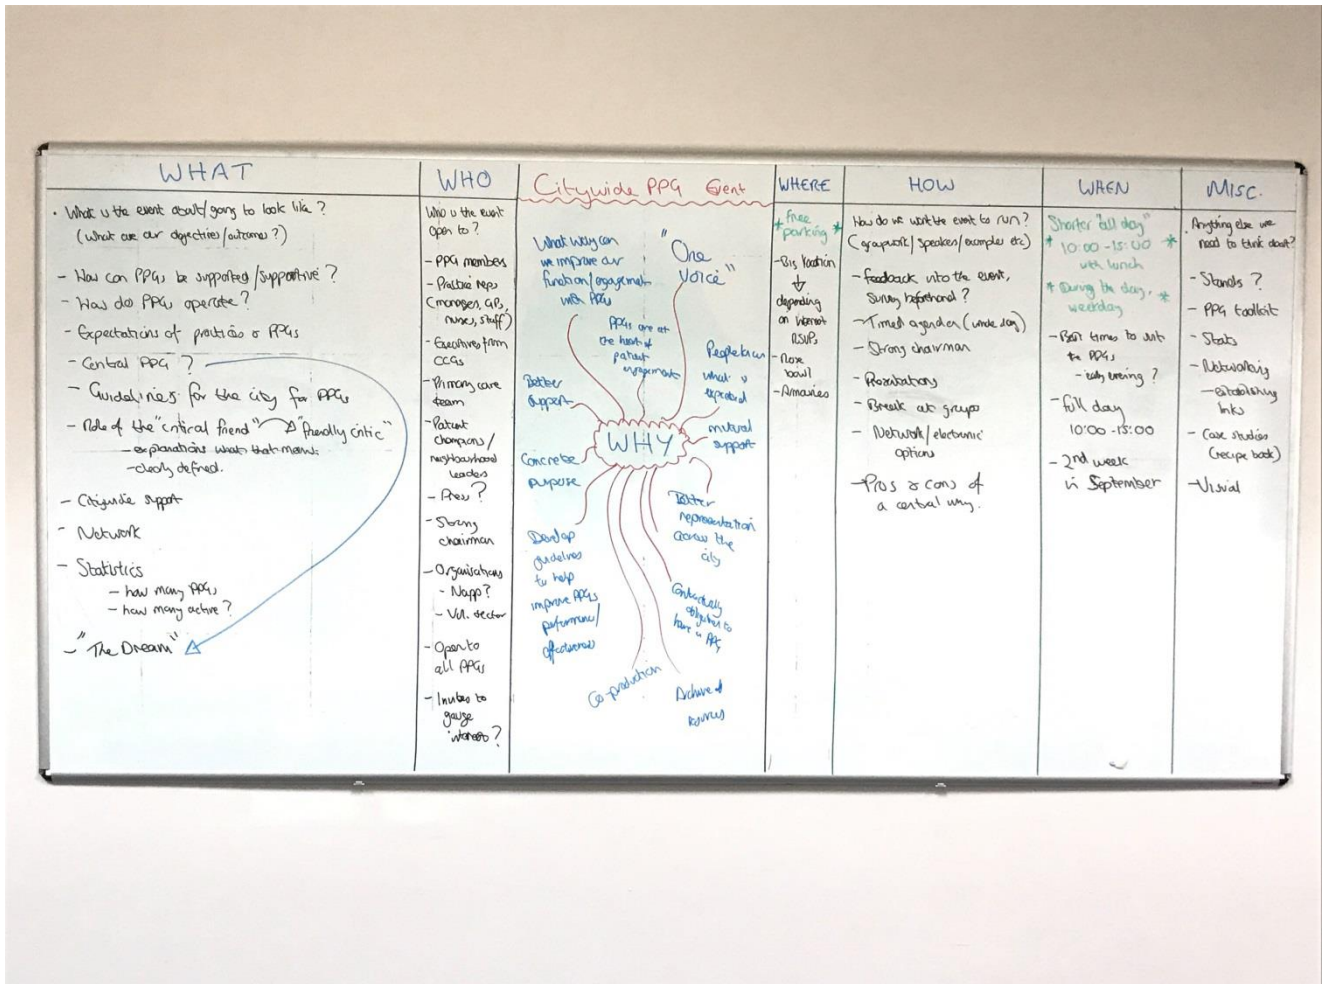 WHAT
• What is the event about/going to look like?
(What are our objectives/outcomes?)
- How can PPGs be supported/supportive?
- How do PPGs operate?
- Expectations of practices & PPGs
- Central PPG?
- Guidelines for the city for PPGs
- Role of the "critical friend" "friendly critic"
- explanations what that means.
- clearly defined.
- Citywide support
- Network
- Statistics
- how many PPGs
- how many active?
- "The Dream"
WHO
Who is the event
open to?
- PPG members
- Practice reps
(managers, GPs,
nurses, staff)
- Executives from
CCGs
- Primary care
team
- Patient
champions/
neighbourhood
leaders
- Press?
- Strong
chairman
- Organisations
- Napp?
- Vol. sector
- Open to
all PPGs
- Invites to
gauge
interest?
Citywide PPG Event
What way can
we improve our
function/engagement
with PPGs
"One
Voice"
PPGs are at
the heart of
patient
engagement
People know
what is
expected
Better
support
mutual
support
WHY
Concrete
purpose
Better
representation
across the
city
Develop
guidelines
to help
improve PPGs
performance/
effectiveness
Contractually
obligated to
have a PPG
Co-production
Archive of
resources
WHERE
* free
parking *
- Big location
depending
on interest
RSVPs
- Rose
bowl
- Armouries
HOW
How do we want the event to run?
(groupwork/speakers/examples etc)
- feedback into the event,
survey beforehand?
- Timed agenda (whole day)
- Strong chairman
- Presentations
- Break out groups
- Network/electronic
options
- Pros & cons of
a central way.
WHEN
Shorter "all day"
* 10:00-15:00 *
with lunch
* During the day, *
weekday
- Best times to suit
the PPGs
- early evening?
- full day
10:00-15:00
- 2nd week
in September
MISC.
. Anything else we
need to think about?
- Stands?
- PPG toolkit
- Stats
- Networking
- establishing
links
- Case studies
(recipe book)
- Visual